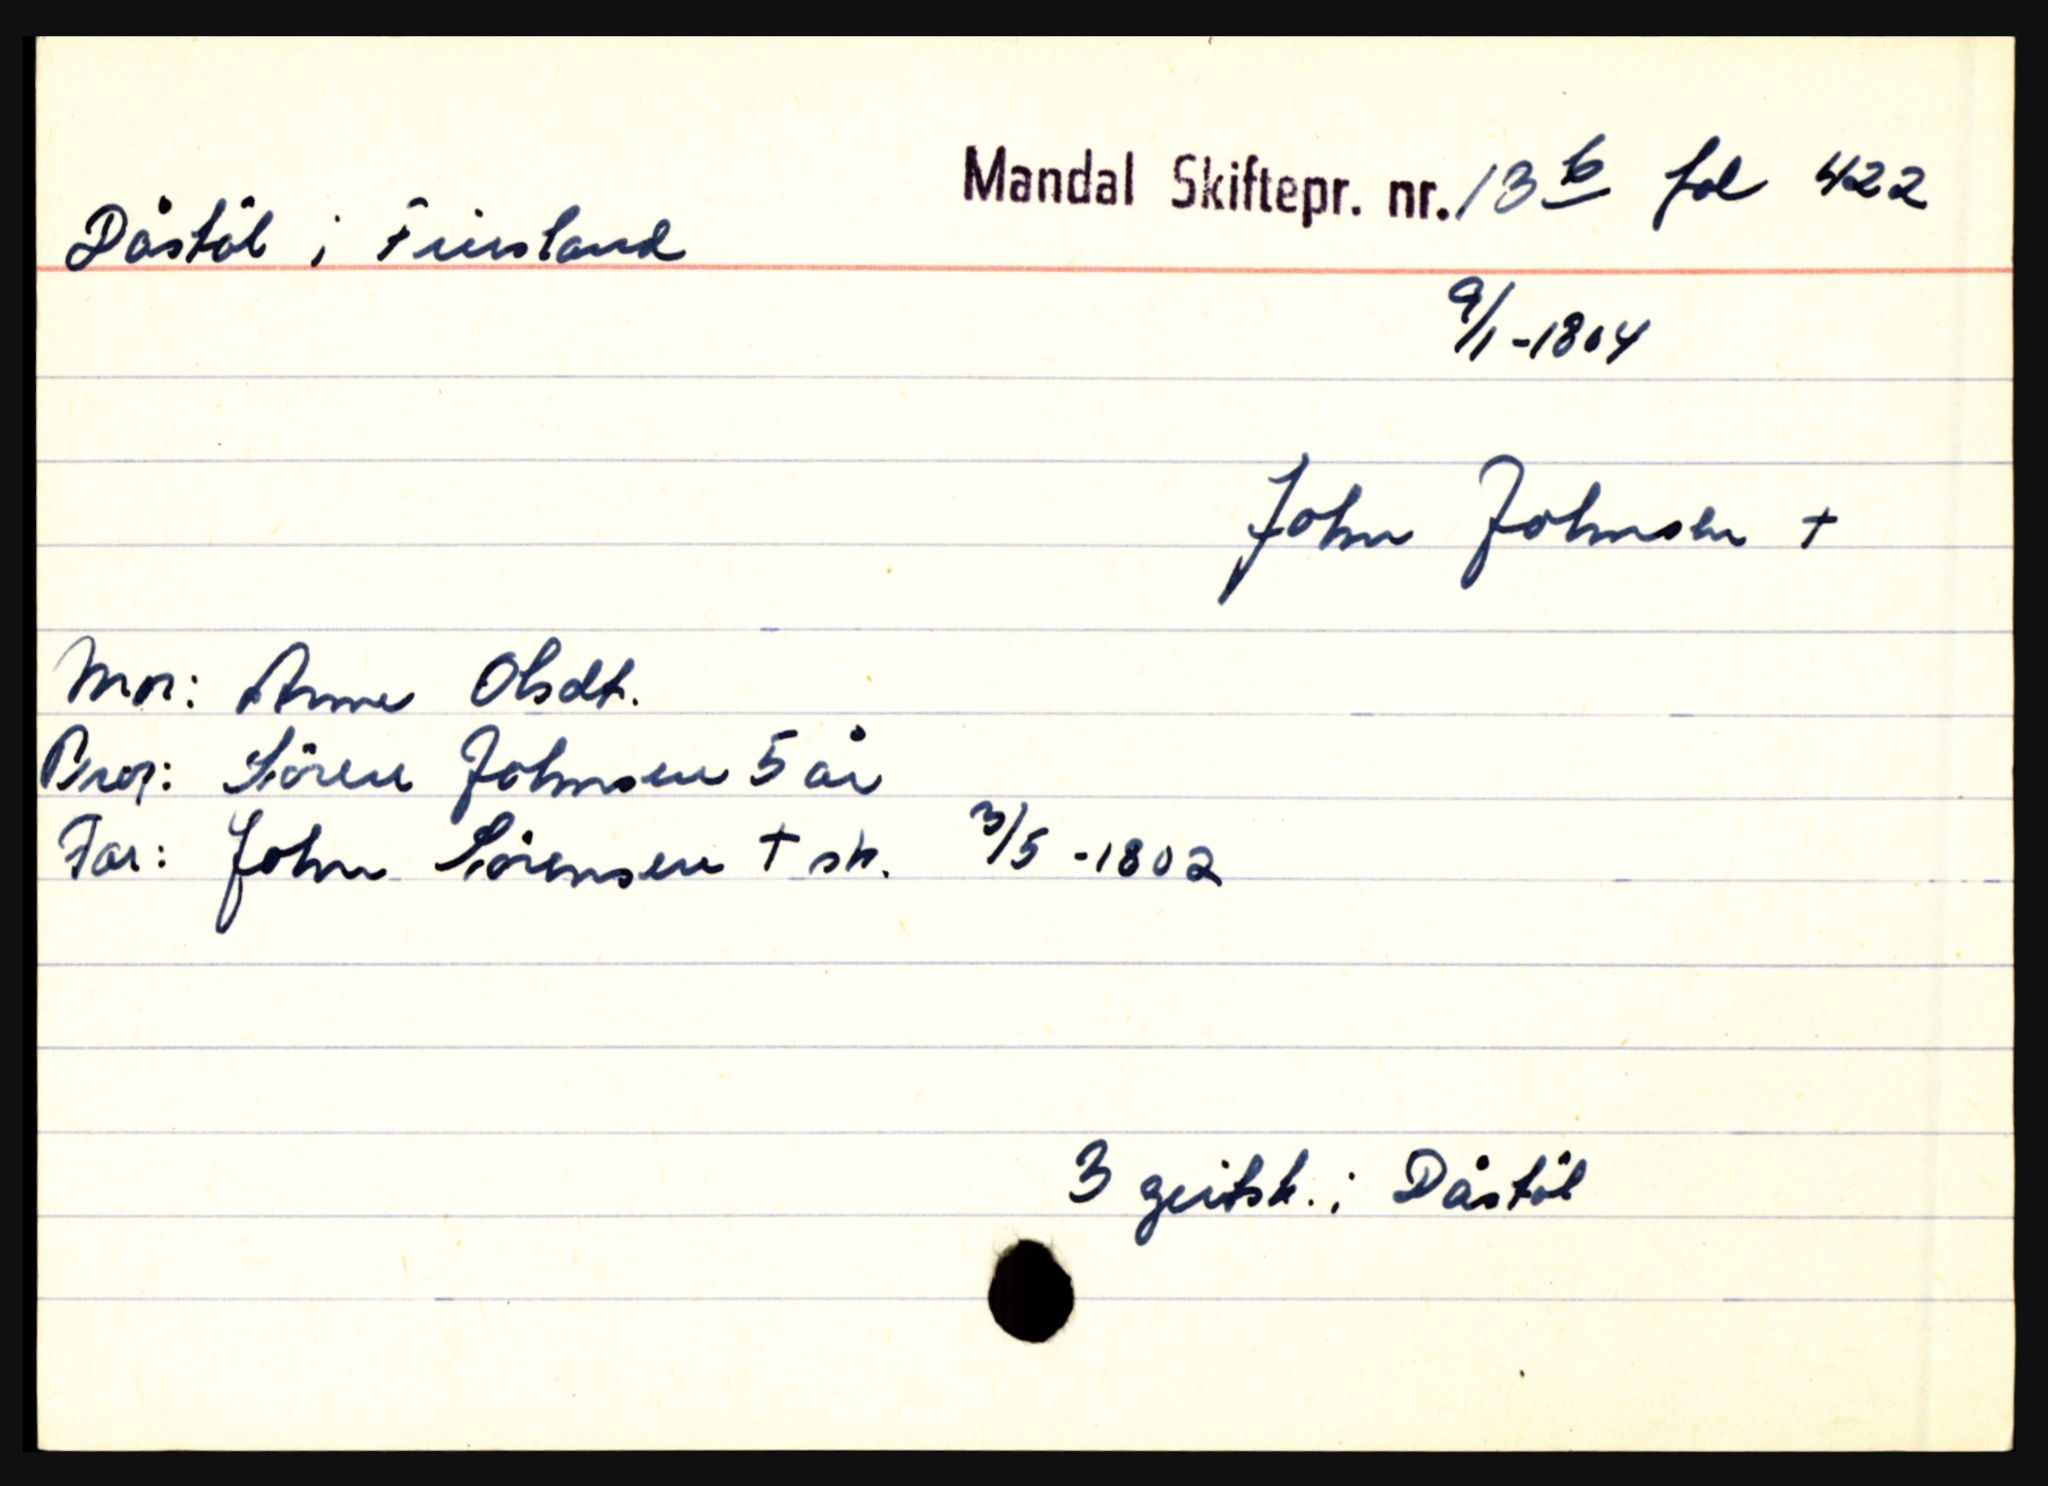 Mandal Skiftepr. nr. 13 b fol 422
Dåstöl i Finsland
9/1-1804
John Johnsen +
Mor: Anne Olsdt.
Bror: Sören Johnsen 5 år
Far: John Sörensen + sk. 3/5 -1802
3 geitsk. i Dåstöl